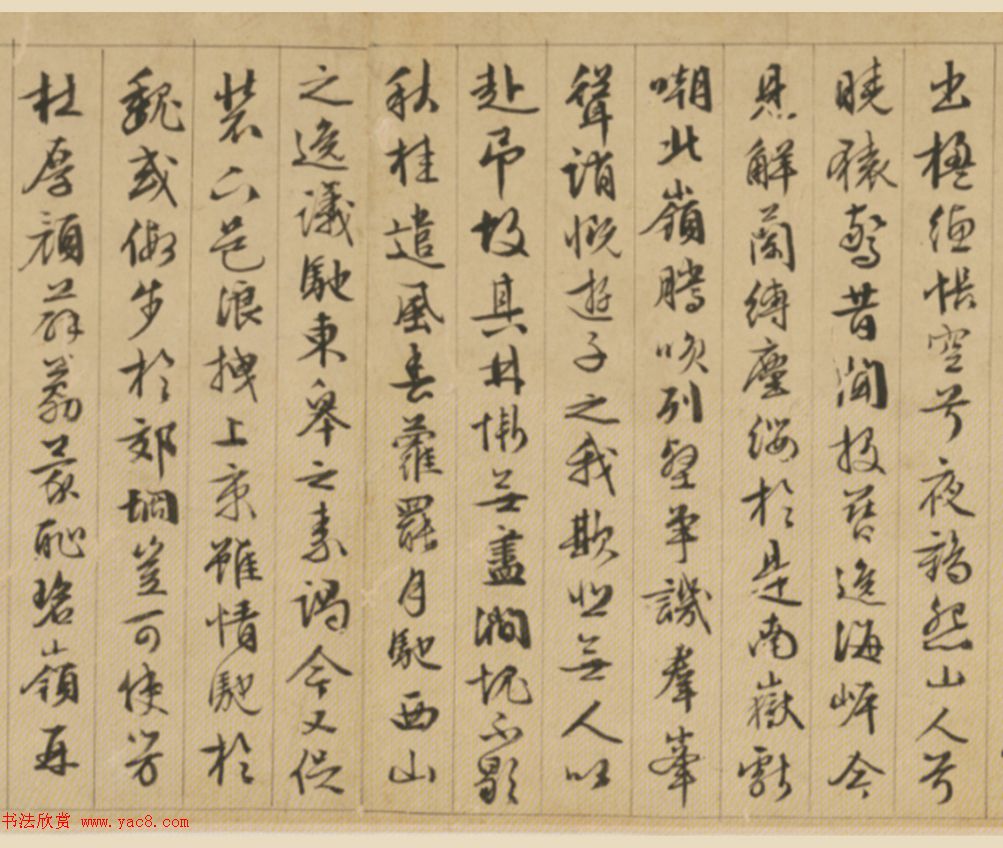 出楹徳帳空兮夜鶴怨山人兮
曉猿驚昔聞投簪逸海岸今
見解蘭縛塵纓於是南嶽獻
嘲北嶺騰笑列壑爭譏羣峯
聳誚慨遊子之我欺悲無人以
赴弔故其林慚無盡澗愧不歇
秋桂遣風春蘿罷月馳西山
之逸議馳東皋之素謁今又促
裝下邑浪拽上京雖情馳於
魏或假步於郊坰豈可使芳
杜厚顏薜荔蒙恥碧嶺再
书法欣赏 www.yac8.com